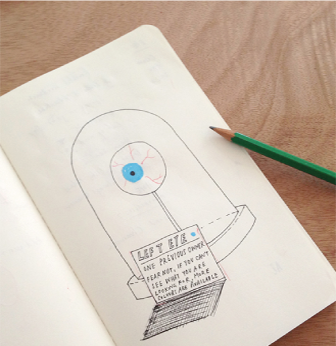 LEFT EYE
ONE PREVIOUS OWNER
FEAR NOT, IF YOU CAN'T
SEE WHAT YOU ARE
LOOKING FOR, MORE
COLOURS ARE AVAILABLE